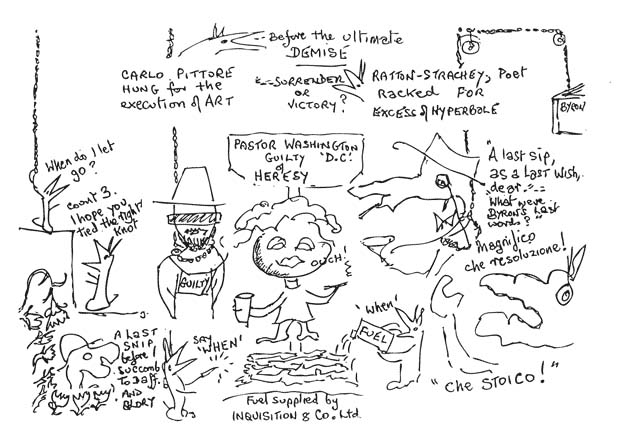 Before the ultimate
DEMISE
CARLO PITTORE
HUNG for the
execution of ART
SURRENDER
OR
VICTORY?
RATTON-STRACHEY, Poet
Racked FOR
EXCESS of HYPERBOLE
BYRON
When do I let
go?
count 3.
I hope you
tied the right
knot
PASTOR WASHINGTON
GUILTY 'D.C.'
of
HERESY
"A last sip,
as a last wish,
dear
What were
BYRON'S last
words?"
Magnifico
che resoluzione!
OUCH!
GUILTY
A LAST
SNIP
before I
succomb
To Daff.
AND
GLORY
SAY
'WHEN'
'when'
FUEL
"che STOICO!"
Fuel supplied by
INQUISITION & Co. Ltd.